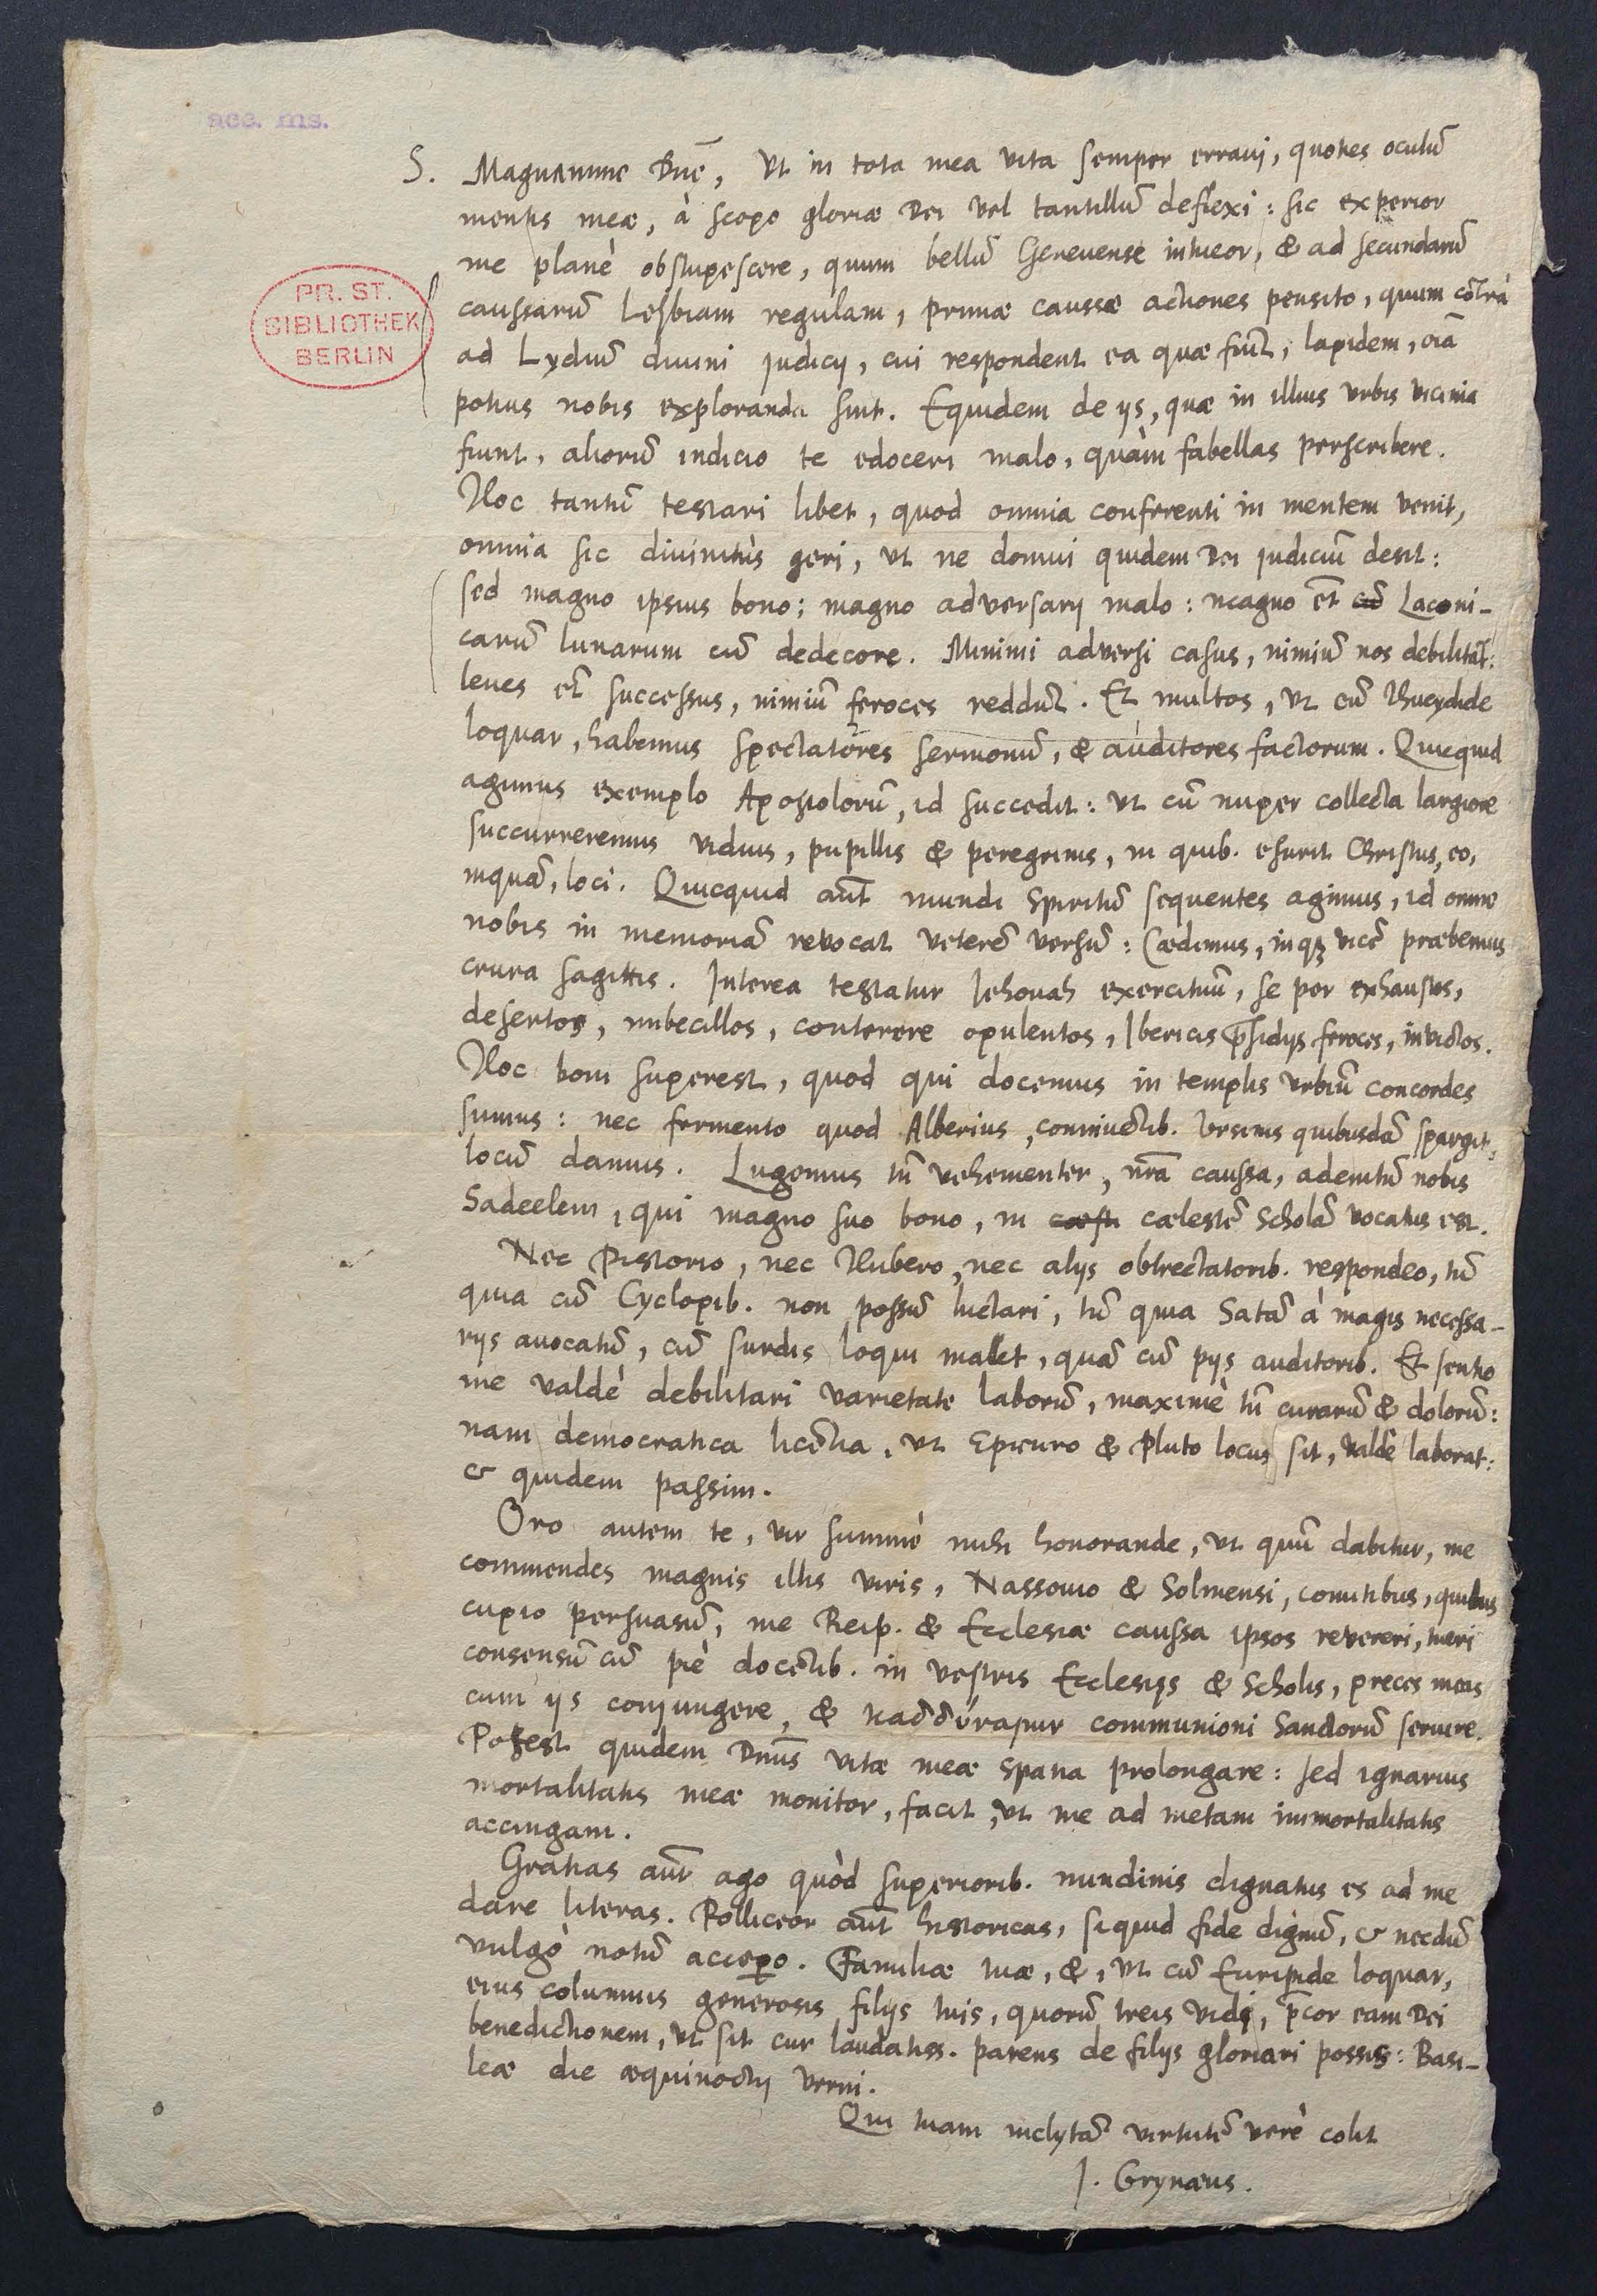 acc. ms.
PR. ST.
BIBLIOTHEK
BERLIN
S. Magnanime Dn̄e, Vt in tota mea vita semper erraui, quoties oculū
mentis meæ, à scopo gloriæ Dei vel tantillū deflexi: sic experior
me planè obstupescere, quum bellū Geneuense intueor, & ad secundarū
caussarū Lesbiam regulam, primæ caussæ actiones pensito, quum cōtrà
ad Lydiū diuini judicij, cui respondent ea quæ fiūt, lapidem, oīa
potius nobis exploranda sint. Equidem de ijs, quæ in illius vrbis vicinia
fiunt, aliorū indicio te edoceri malo, quàm fabellas perscribere.
Hoc tantū testari libet, quod omnia conferenti in mentem venit,
omnia sic diuinitùs geri, vt ne domui quidem Dei judiciū desit:
sed magno ipsius bono; magno adversarij malo: magno et̄ cū Laconi-
carū lunarum cū dedecore. Minimi adversi casus, nimiū nos debilitāt:
leues et̄ successus, nimiū feroces reddūt. Et multos, vt cū Thucydide
loquar, habemus spectatores sermonū, & auditores factorum. Quicquid
agimus exemplo Apostolorū, id succedit: vt cū nuper collecta largiore
succurreremus viduis, pupillis & peregrinis, in quib. esurit Christus, eo,
inquā, loci. Quicquid aūt mundi spiritū sequentes agimus, id omne
nobis in memoriā revocat veterē versū: Cædimus, inqȝ vicē præbemus
crura sagittis. Interea testatur Jehovah exercituū, se per exhaustos,
desertos, imbecillos, conterere opulentos, Ibericis p̄sidijs feroces, invictos.
Hoc boni superest, quod qui docemus in templis vrbiū concordes
sumus: nec fermento quod Alberius, conniuētib. Vrsinis quibusdā spargit,
locū damus. Lugemus tn̄ vehementer, nr̄a caussa, ademtū nobis
Sadeelem, qui magno suo bono, in cælestē Scholā vocatus est.
Nec Pistorio, nec Hubero, nec alijs obtrectatorib. respondeo, tū
quia cū Cyclopib. non possū luctari, tū quia Satā à magis necessa-
rijs auocatū, cū surdis loqui mallet, quā cū pijs auditorib. Et sentio
me valdè debilitari varietate laborū, maximè tn̄ curarū & dolorū:
nam democratica licētia, vt Epicuro & Pluto locus sit, valdè laborat:
& quidem passim.
Oro autem te, vir summè mihi honorande, vt quū dabitur, me
commendes magnis illis viris, Nassouio & Solmensi, comitibus, quibus
cupio persuasū, me Reip. & Ecclesiæ caussa ipsos revereri, tueri
consensū cū piè docētib. in vestris Ecclesijs & Scholis, preces meas
cum ijs conjungere, & καδδύναμιν communioni Sanctorū seruire.
Potest quidem Dn̄us vitæ meæ spatia prolongare: sed ignarius
mortalitatis meæ monitor, facit, vt me ad metam immortalitatis
accingam.
Gratias aūt ago quòd superiorib. nundinis dignatus es ad me
dare literas. Polliceor aūt historicas, siquid fide dignū, & necdū
vulgò notū accepero. Familiæ tuæ, &, vt cū Euripide loquar,
eius columnis generosis filijs tuis, quorū treis vidi, p̄cor eam Dei
benedictionem, vt sit cur laudatiss. parens de filijs gloriari possis: Basi-
leæ die æquinoctij verni.
Qui tuam inclytā virtutē verè colit
J. Grynæus.